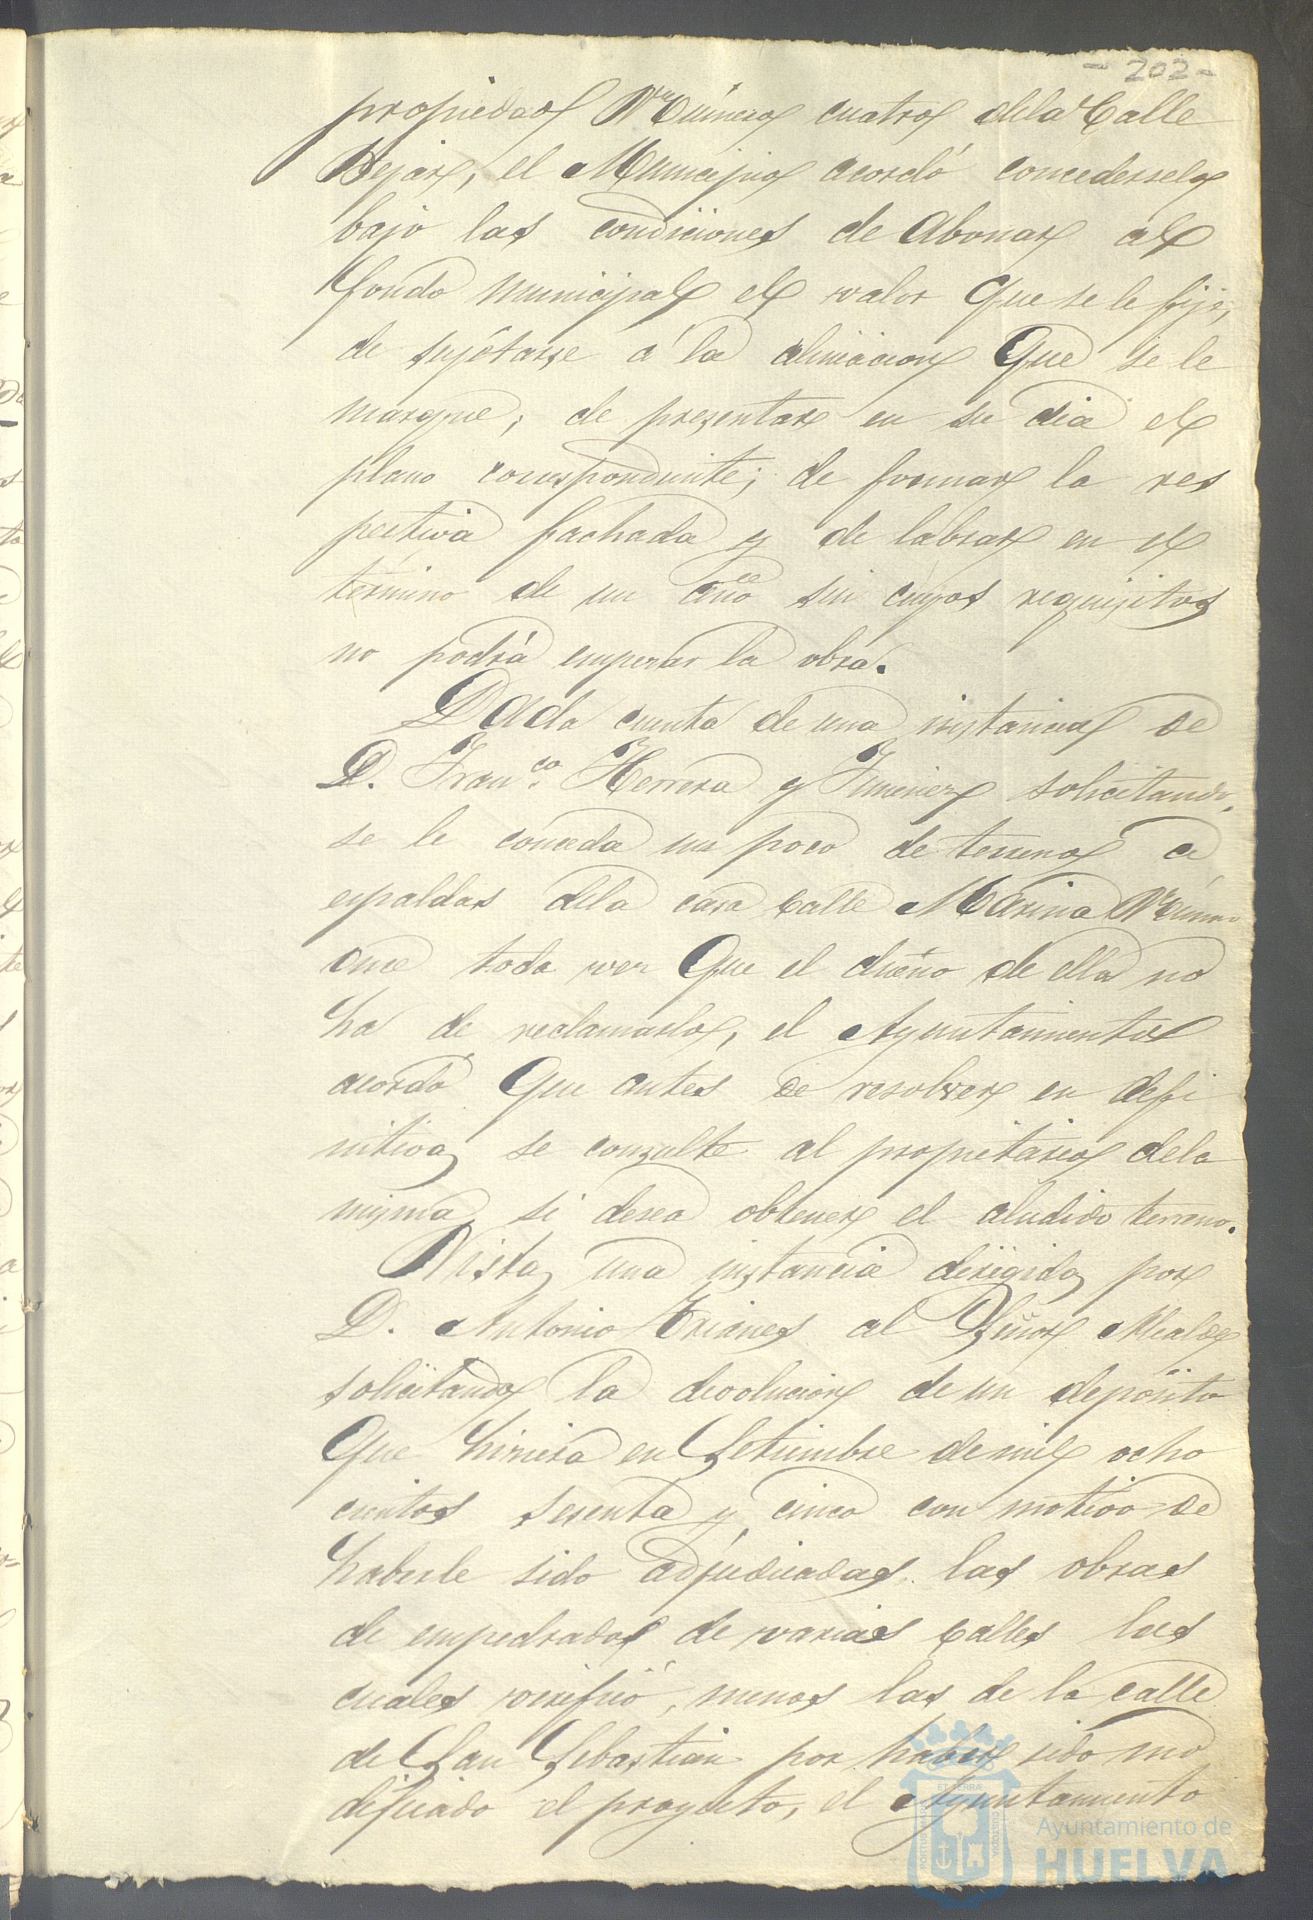 - 202 -
propiedad Número cuatro dela Calle
Bejar, el Municipio acordó concederselo
bajo las condiciones de Abonar al
fondo municipal el valor que se le fije,
de sujetarse á la aliniacion que se le
marque; de presentar en su dia el
plano correspondiente; de formar la res
pectiva fachada y de labrar en el
término de un año sin cuyos requisitos
no podrá empezar la obra.
Dada cuenta de una instancia de
D. Franco. Herrera y Jimenez solicitando
se le conceda un poco de terreno a
espaldas dela casa Calle Marina Número
once toda vez que el dueño de ella no
ha de reclamarlo, el Ayuntamiento
acordó que antes de resolver en defi
nitiva se consulte al propietario dela
misma si desea obtener el aludido terreno.
Vista una instancia dirigida por
D. Antonio Trianes al Señor Alcalde
solicitando la devolucion de un depósito
que hiciera en Setiembre de mil ocho
cientos sesenta y cinco con motivo de
haberle sido adjudicadas las obras
de empedrados de varias calles las
cuales verificó, menos las de la calle
de San Sebastian por haber sido mo
dificado el proyecto, el Ayuntamiento
Ayuntamiento de
HUELVA